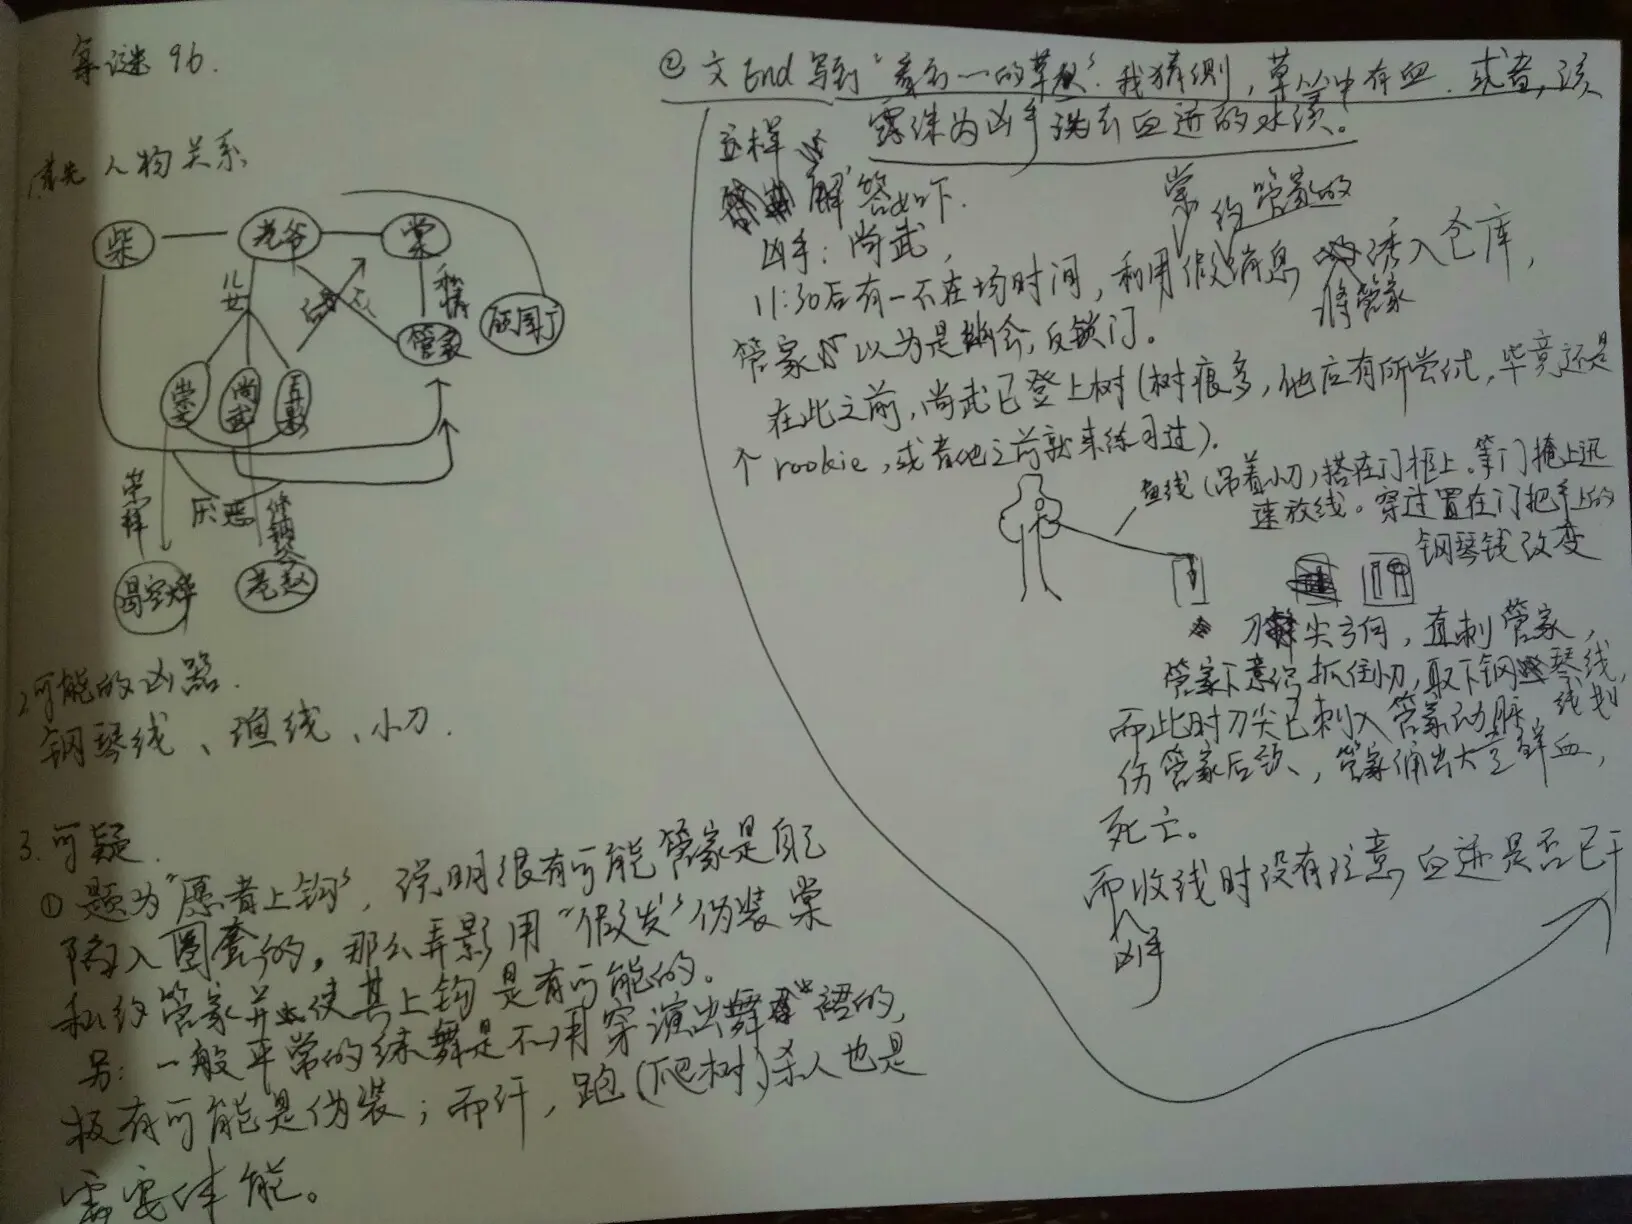 谜96.
首先 人物关系
柴 老爷 棠
儿女 私情
管家 园丁
尚武 弄影
厌恶
老赵
2可能的凶器.
钢琴线、渔线、小刀.
3.可疑.
① 题为"愿者上钩",说明很有可能管家是自己
陷入圈套的,那么弄影用"假发"伪装棠
和约管家并使其上钩是有可能的。
另:一般平常的练舞是不用穿演出舞裙的,
极有可能是伪装;而汗,跑(爬树)杀人也是
需要体能。
② 文End写到"的草叔".我猜测,草丛中有血.或者,该
露珠为凶手洗去血迹的水渍。
这样
解答如下.
凶手:尚武,
11:30后有一不在场时间,利用假消息 诱入仓库,
棠约管家的
将管家
管家以为是幽会,反锁门。
在此之前,尚武已登上树(树痕多,他应有所尝试,毕竟还是
个rookie,或者他之前就来练习过).
鱼线(吊着小刀)搭在门框上。等门掩上迅
速放线。穿过置在门把手上的
钢琴线改变
刀尖方向,直刺管家,
管家下意识抓住小刀,取下钢琴线,
而此时刀尖已刺入管家动脉,线划
伤管家后颈,管家涌出大量鲜血,
死亡。
而收线时没有注意血迹是否已干
凶手